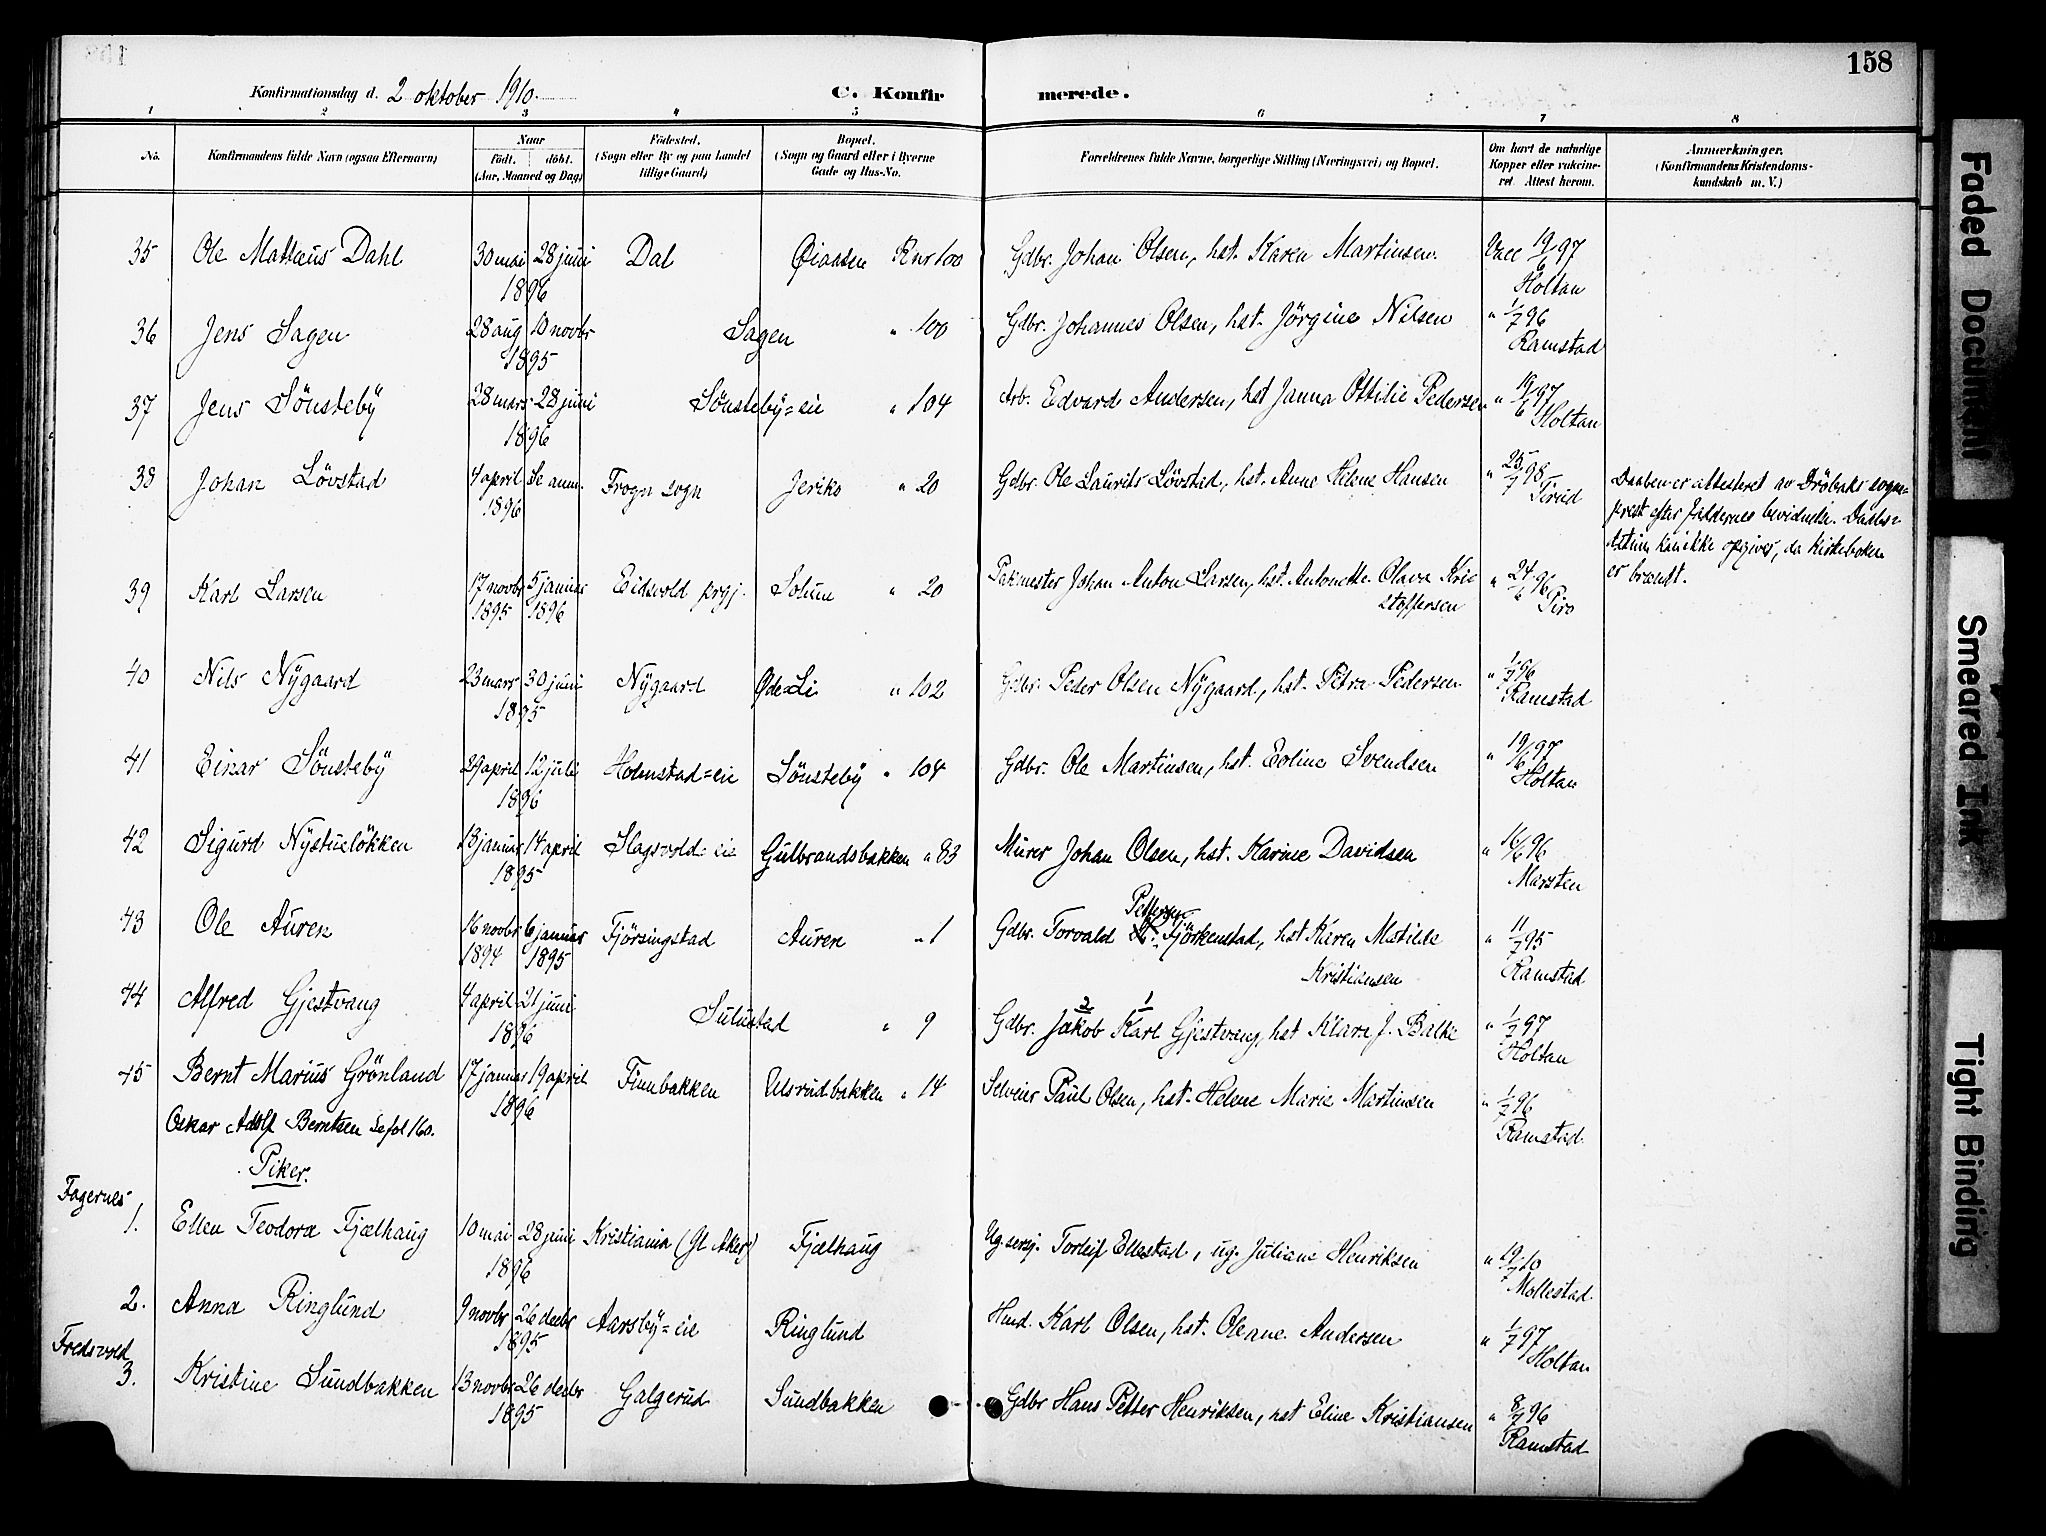 158
Konfirmationsdag d. 2 oktober 1910.
C. Konfirmerede.
1 2 3 4 5 6 7 8
No. Konfirmandens fulde Navn (ogsaa Efternavn) Naar født. døbt. (Aar, Maaned og Dag) Fødested. (Sogn eller By og paa Landet tillige Gaard) Bopæl. (Sogn og Gaard eller i Byerne Gade og Hus-No. Forældrenes fulde Navne, borgerlige Stilling (Næringsvei) og Bopæl. Om havt de naturlige Kopper eller vaccineret. Attest herom. Anmærkninger. (Konfirmandens Kristendomskundskab m. V.)
35 Ole Mattæus Dahl 30 mai 28 juni 1896 Dal Øiaasen Knr 100 Gdbr. Johan Olsen, hst. Karen Martinsen. Vacc 19/6 97 Holtan
36 Jens Sagen 28 aug 10 novbr 1895 Sagen " 100 Gdbr. Johannes Olsen, hst. Jörgine Nilsen " 1/7 96 Ramstad
37 Jens Sönsteby 28 mars 28 juni 1896 Sönsteby=eie " 104 Arb. Edvard Andersen, hst Janna Ottilie Pedersen " 19/6 97 Holtan
38 Johan Lövstad 4 april Se anm. 1896 Frogn sogn Jeriko " 20 Gdbr. Ole Laurits Lövstad, hst. Anne Helene Hansen " 25/7 98 Daaben er attesteret av Dröbaks sogneprest efter faddernes bevidnelse. Daabsdatum kan ikke opgives, da kirkeboken er brændt.
39 Karl Larsen 17 novbr 1895 5 januar 1896 Eidsvold prgj. Solum " 20 Pakmester Johan Anton Larsen, hst. Antonette Olava Kristoffersen " 24/6 96
40 Nils Nygaard 23 mars 30 juni 1895 Nygaard Øde=Li " 102 Gdbr. Peder Olsen Nygaard, hst. Petra Pedersen " 1/7 96 Ramstad
41 Einar Sönsteby 29 april 12 juli 1896 Holmstad=eie Sönsteby " 104 Gdbr. Ole Martinsen, hst. Eoline Svendsen " 19/6 97 Holtan
42 Sigurd Nystuelökken 13 januar 14 april 1895 Slagsvold=eie Gulbrandsbakken " 83 Murer Johan Olsen, hst. Karine Davidsen " 16/6 96 Marsten
43 Ole Auren 16 novbr 1894 6 januar 1895 Fjörsingstad Auren " 1 Gdbr. Torvald Pettersen Fjörkenstad, hst Karen Matilde Kristiansen " 11/7 95 Ramstad
44 Alfred Gjestvang 4 april 21 juni 1896 Sulustad " 9 Gdbr. Jakob 2 Karl 1 Gjestvang, hst Klara J. Balke " 1/7 97 Holtan
45 Bernt Marius Grönland 17 januar 19 april 1896 Finnbakken Ulsrudbakken " 14 Selveier Paul Olsen, hst. Helene Marie Martinsen " 1/7 96 Ramstad
Oskar Adolf Berntsen se fol 160.
Piker.
Fagernes
1. Ellen Teodora Fjælhaug 10 mai 28 juni 1896 Kristiania (Gl Aker) Fjælhaug Ug. sersj. Torleif Ellestad, ug. Juliane Henriksen " 19/7 10 Mollestad
2. Anna Ringlund 9 novbr 26 decbr 1895 Aarsby=eie Ringlund Hmd. Karl Olsen, hst. Oleane Andersen " 1/7 97 Holtan
Fredsvold
3. Kristine Sundbakken 13 novbr 26 decbr 1895 Galgerud Sundbakken Gdbr Hans Petter Henriksen, hst Eline Kristiansen " 8/7 96 Ramstad
Faded Document
Smeared Ink
Tight Binding